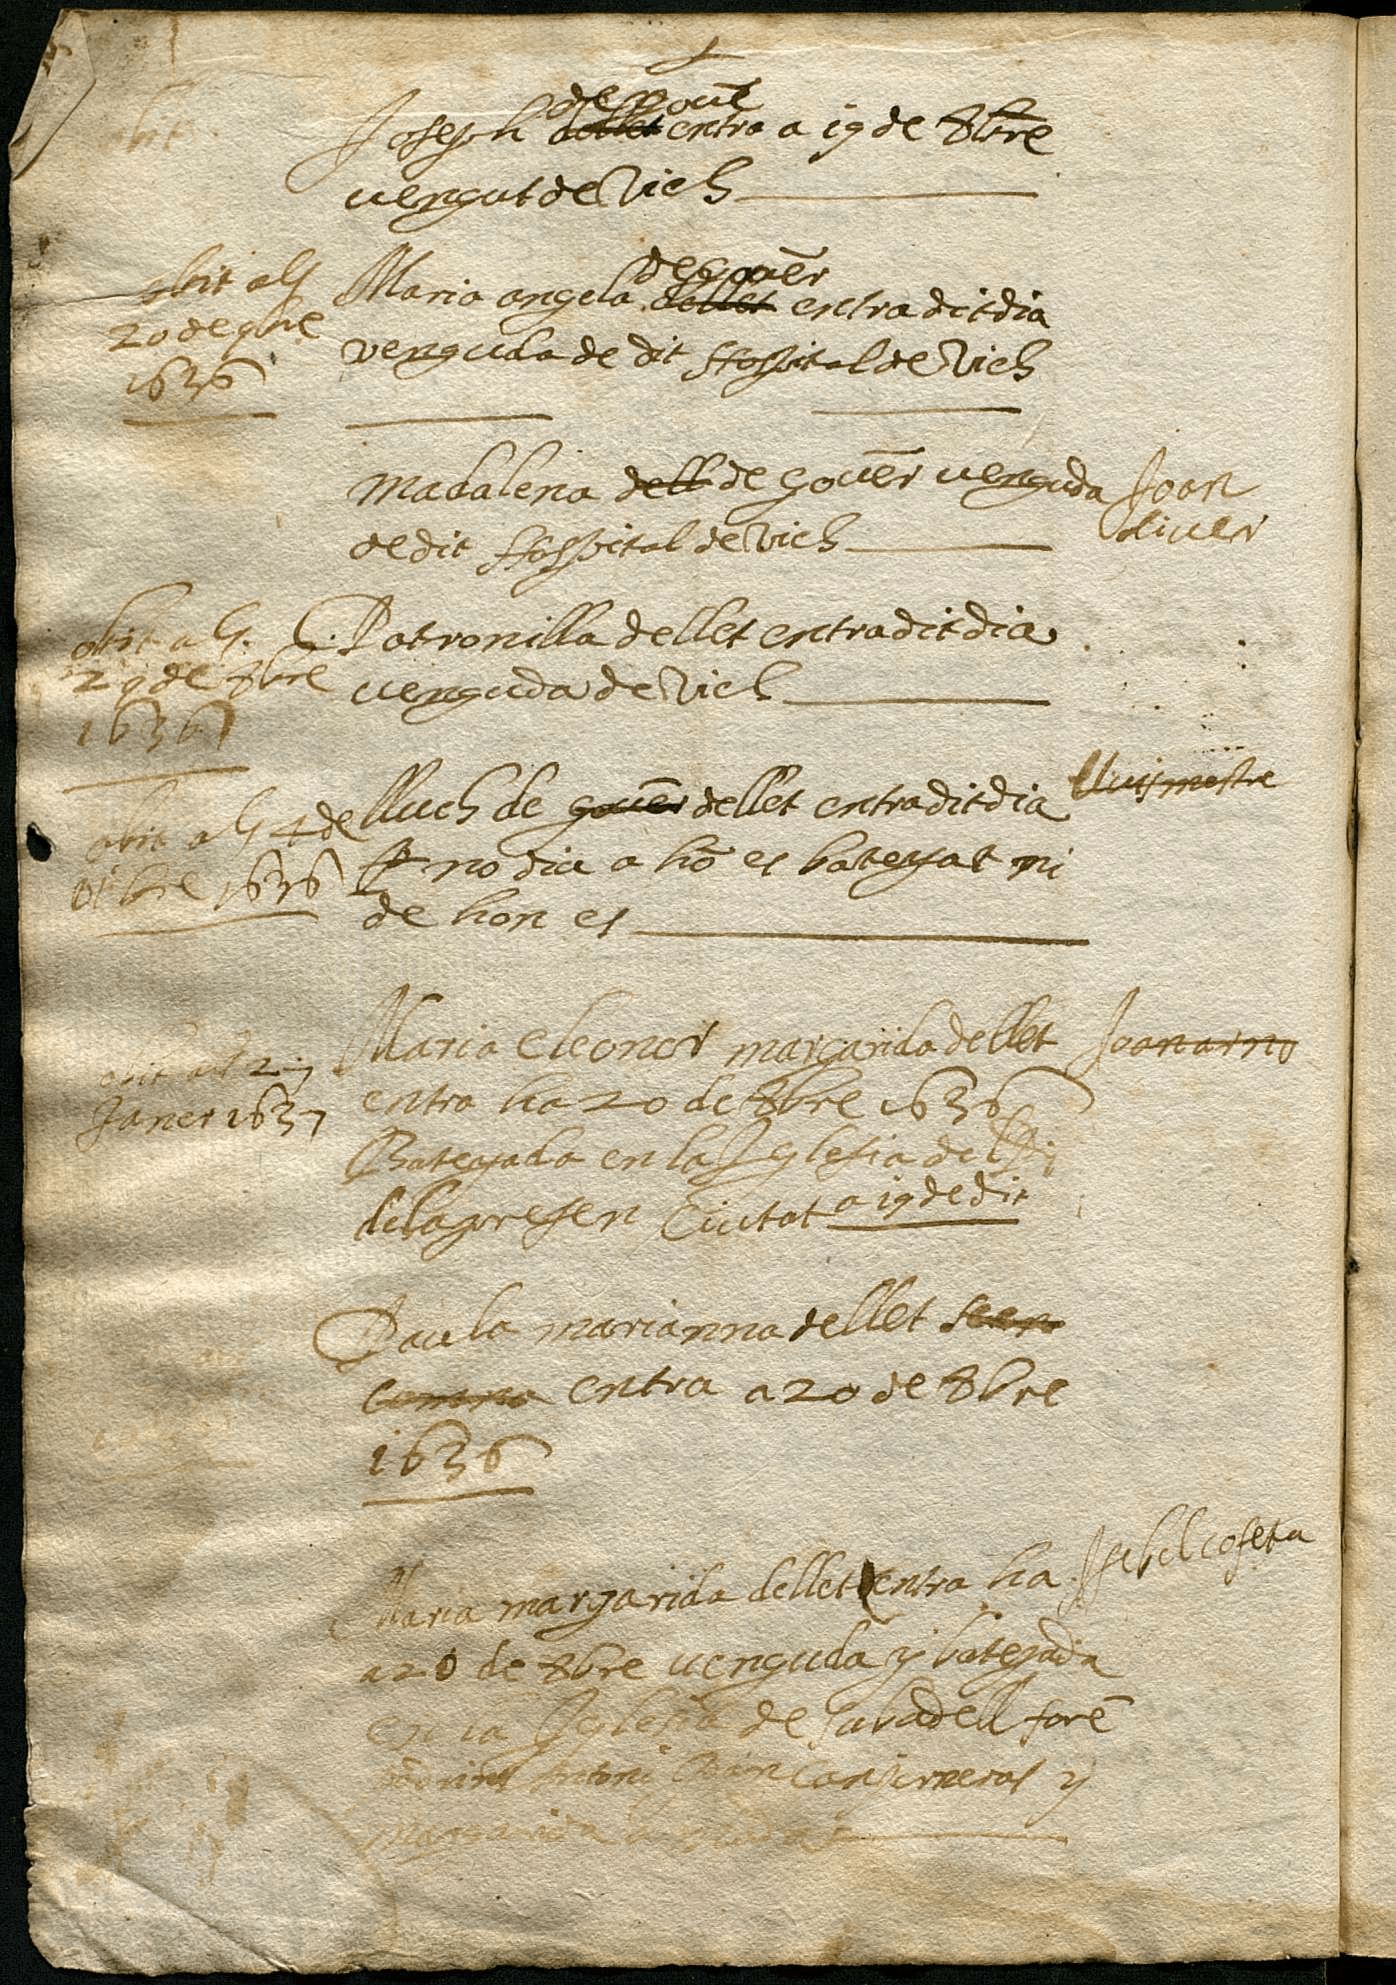 obit
Joseph dellet de gouer entra a 19 de 8bre
vengut de Vich
obit als
20 de 9bre
1636
Maria angela dellet de gouēr entra dit dia
venguda de dit Hospital de Vich
Madalena dell de gouēr venguda
de dit Hospital de Vich
Joan
oliuer
obit als
29 de 8bre
1636
Patronilla de llet entra dit dia
uenguda de Vich
obit als 4 de
bre 1636
lluch de gouēr de llet entra dit dia
no diu a hō es bateyat ni
de hon es
lluis mestre
obit als 27
Janer 1637
Maria Eleonor margarida de llet
entra ha 20 de 8bre 1636
Bateyada en la Iglesia del
de la presen Ciutat a 19 de dit
Joan arno
Paula marianna de llet
entra a 20 de 8bre
1636
Maria margarida de llet entra ha
a 20 de 8bre uenguda y bateyada
en la Iglesia de Sabadell forē
Antoni y
Margarida
Isabel coseta